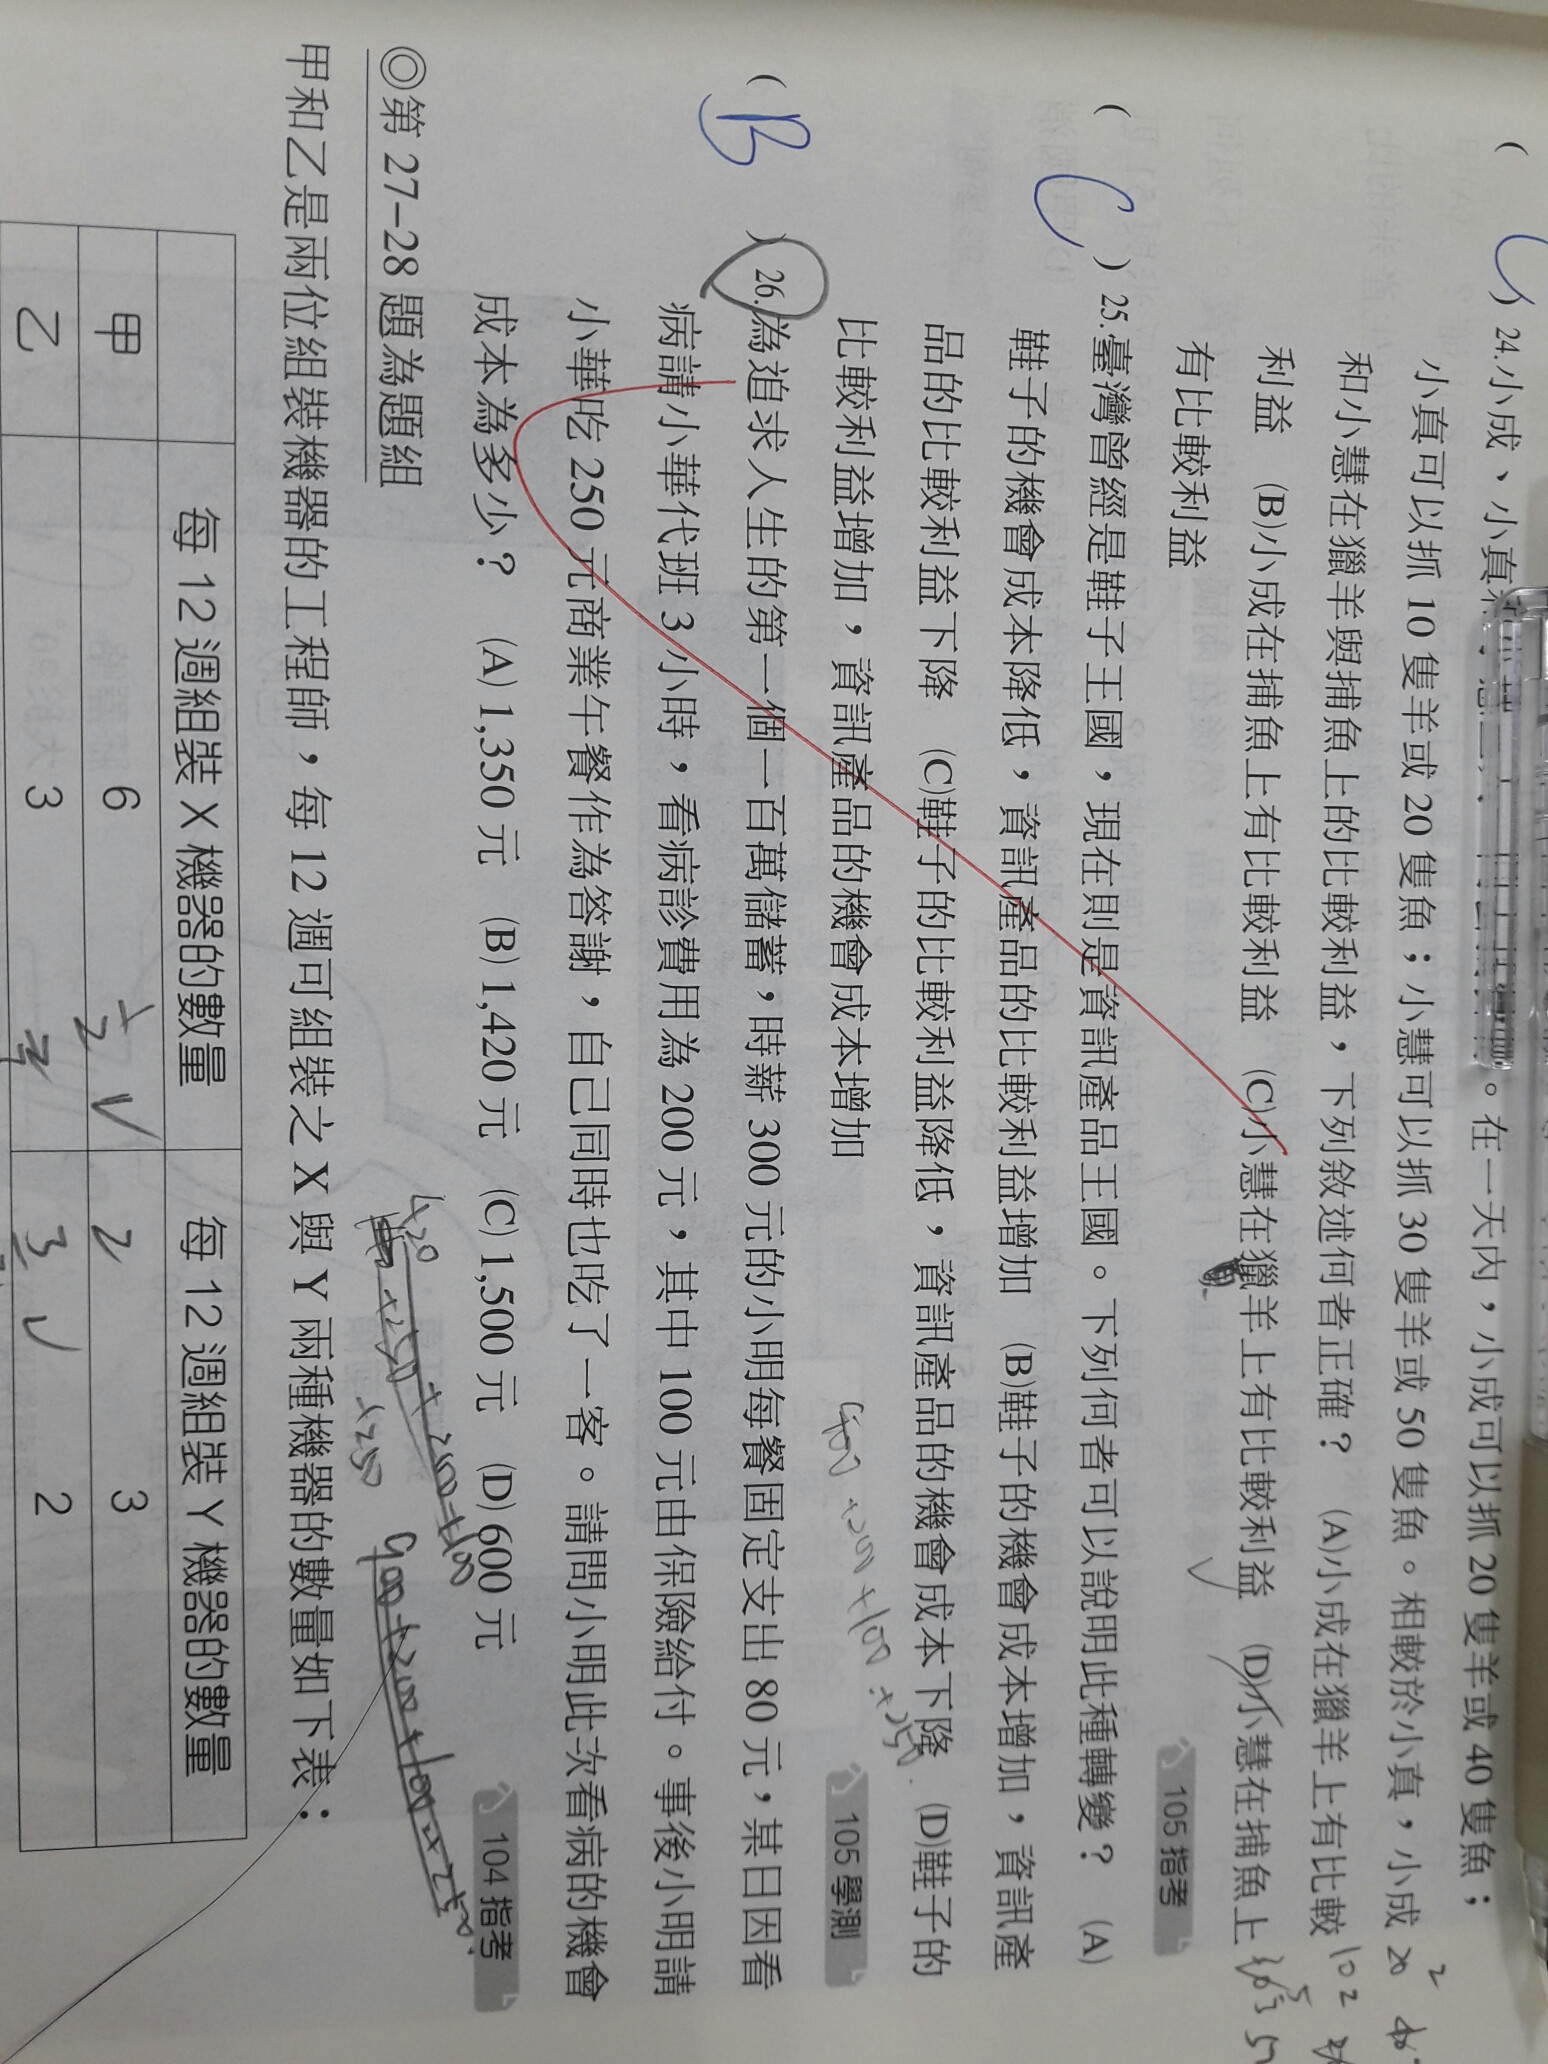 ( C ) 24.小成、小真 。在一天內,小成可以抓 20 隻羊或 40 隻魚;
小真可以抓 10 隻羊或 20 隻魚;小慧可以抓 30 隻羊或 50 隻魚。相較於小真,小成
和小慧在獵羊與捕魚上的比較利益,下列敘述何者正確? (A)小成在獵羊上有比較
利益 (B)小成在捕魚上有比較利益 (C)小慧在獵羊上有比較利益 (D)小慧在捕魚上
有比較利益
105 指考
( C ) 25.臺灣曾經是鞋子王國,現在則是資訊產品王國。下列何者可以說明此種轉變? (A)
鞋子的機會成本降低,資訊產品的比較利益增加 (B)鞋子的機會成本增加,資訊產
品的比較利益下降 (C)鞋子的比較利益降低,資訊產品的機會成本下降 (D)鞋子的
比較利益增加,資訊產品的機會成本增加
105 學測
900 +200 +100 +250
( B ) 26.為追求人生的第一個一百萬儲蓄,時薪 300 元的小明每餐固定支出 80 元,某日因看
病請小華代班 3 小時,看病診費用為 200 元,其中 100 元由保險給付。事後小明請
小華吃 250 元商業午餐作為答謝,自己同時也吃了一客。請問小明此次看病的機會
成本為多少? (A) 1,350 元 (B) 1,420 元 (C) 1,500 元 (D) 600 元
104 指考
◎第 27-28 題為題組
甲和乙是兩位組裝機器的工程師,每 12 週可組裝之 X 與 Y 兩種機器的數量如下表:
每 12 週組裝 X 機器的數量 每 12 週組裝 Y 機器的數量
甲 6 1/2 2 3
乙 3 2